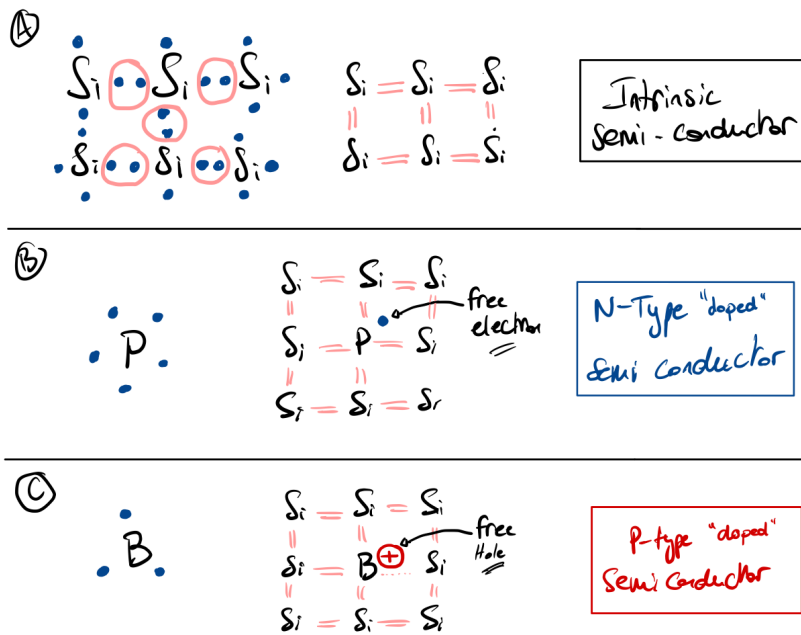 A
Si Si Si
Si Si Si
Si = Si = Si
Si = Si = Si
Intrinsic
Semi-conductor
B
P
Si = Si = Si
Si = P = Si
Si = Si = Si
free
electron
N-Type "doped"
Semi Conductor
C
B
Si = Si = Si
Si = B + Si
Si = Si = Si
free
Hole
P-type "doped"
Semi Conductor